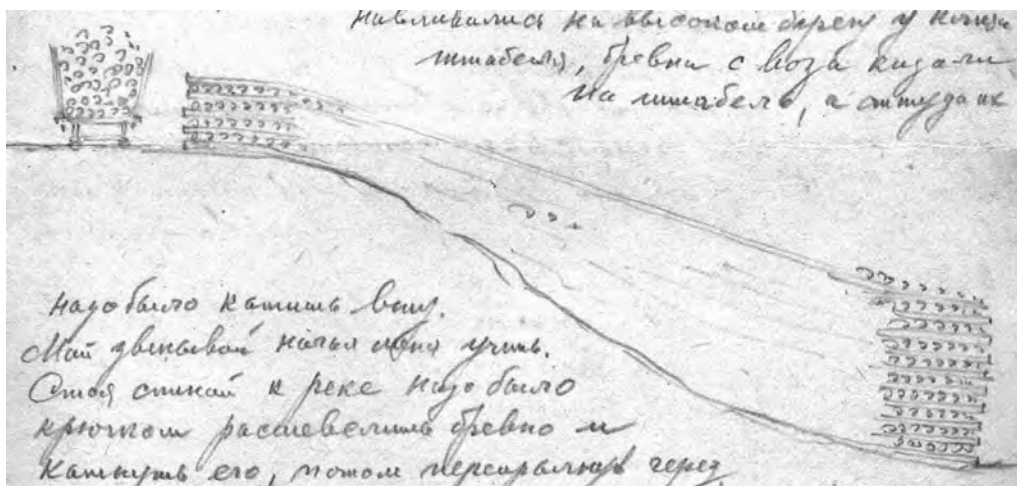 на высоком берегу у
штабеля, бревна с воза кидали
на штабель, а оттуда их
надо было катить вниз.
Мой звеньевой начал меня учить.
Стоя спиной к реке надо было
крючком расшевелить бревно и
катнуть его, потом перепрыгнуть через